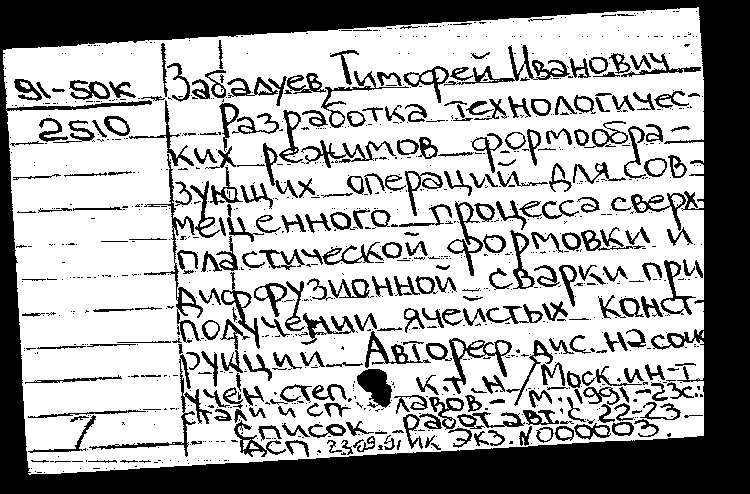 91-50к
2510
Забалуев, Тимофей Иванович
Разработка технологичес-
ких режимов формообра-
зующих операций для сов-
мещенного процесса сверх-
пластической формовки и
диффузионной сварки при
получении ячеистых конст-
рукций: Автореф. дис. на соиск
учен. степ. к.т.н / Моск. ин-т
стали и сплавов.- М., 1991.-23с.:
Список работ авт.: с. 22-23.
АСП. 23.09.91 ИК ЭКЗ. N000003.
7